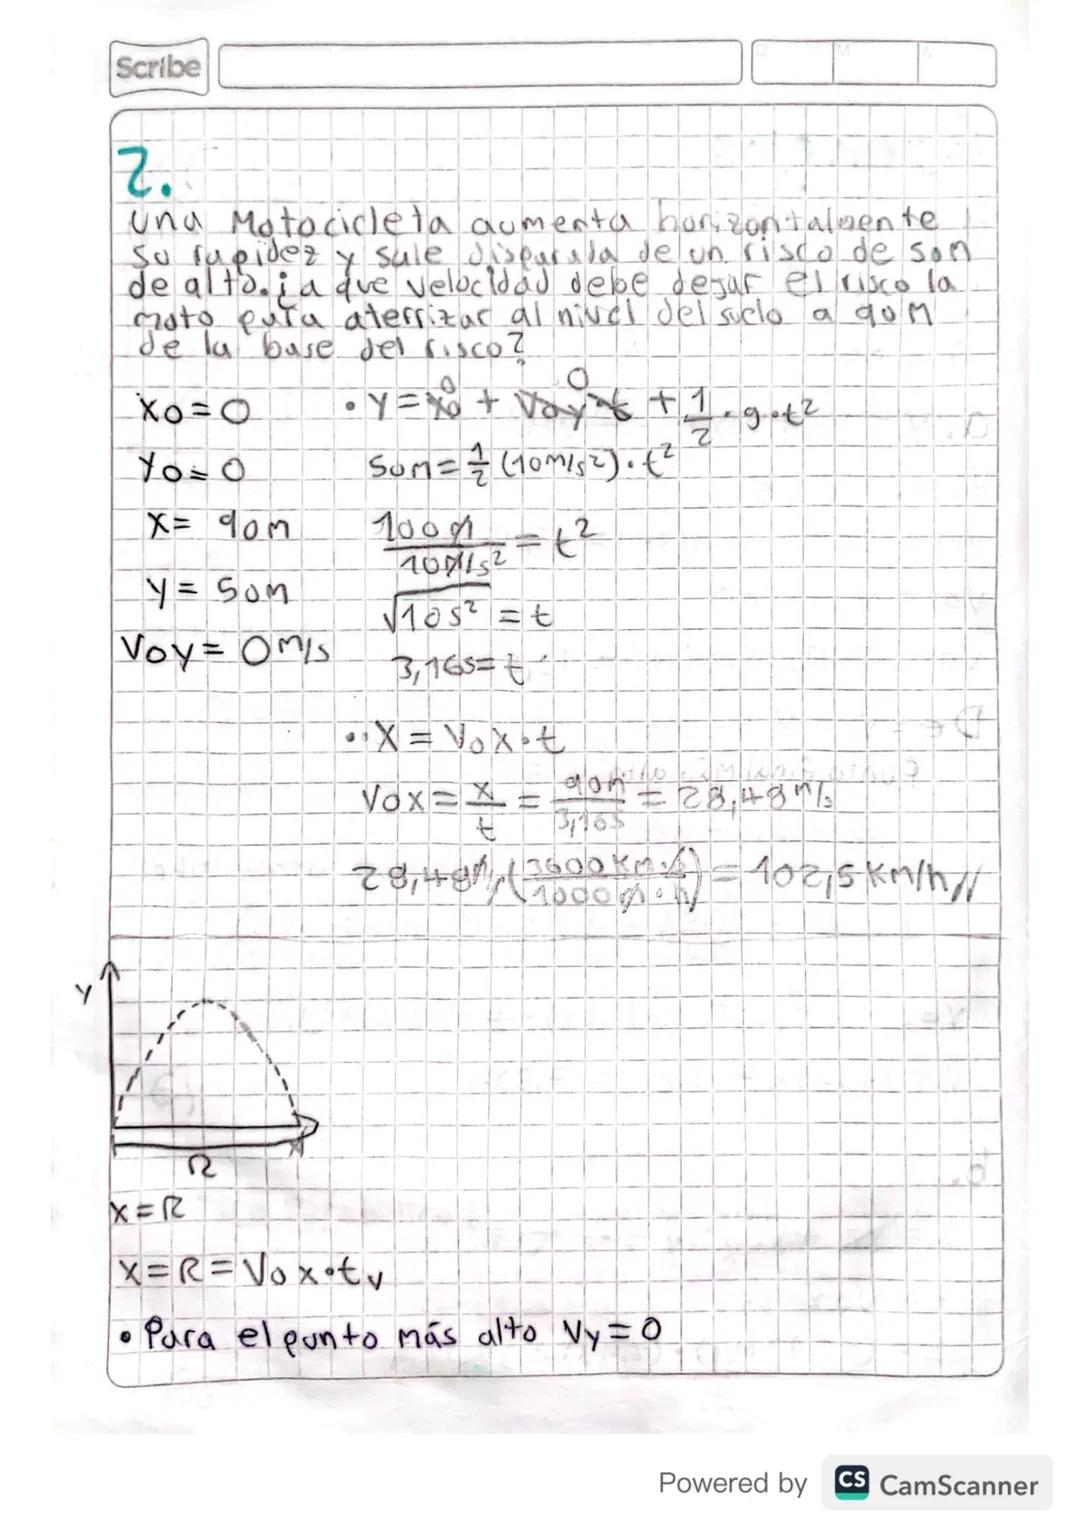 Scribe
2.
una Motocicleta aumenta horizontalmente
su rapidez y sale disparada de un risco de 50m
de alto. ¿a que velocidad debe dejar el risco la
moto para aterrizar al nivel del suelo a 90m
de la base del risco?
X₀ = 0
Y₀ = 0
X = 90m
y = 50m
V₀y = 0 m/s
• Y = Y₀ 0 + V₀y t 0 + 1/2 · g · t²
50m = 1/2 (10m/s²) · t²
100m / 10m/s² = t²
√10s² = t
3,16s = t
• X = V₀x · t
V₀x = x/t = 90m / 3,16s = 28,48 m/s
28,48 m/s (3600 Km·s / 1000 m·h) = 102,5 Km/h //
Y
X
R
X = R
X = R = V₀x · tv
• Para el punto más alto Vy = 0
Powered by CS CamScanner